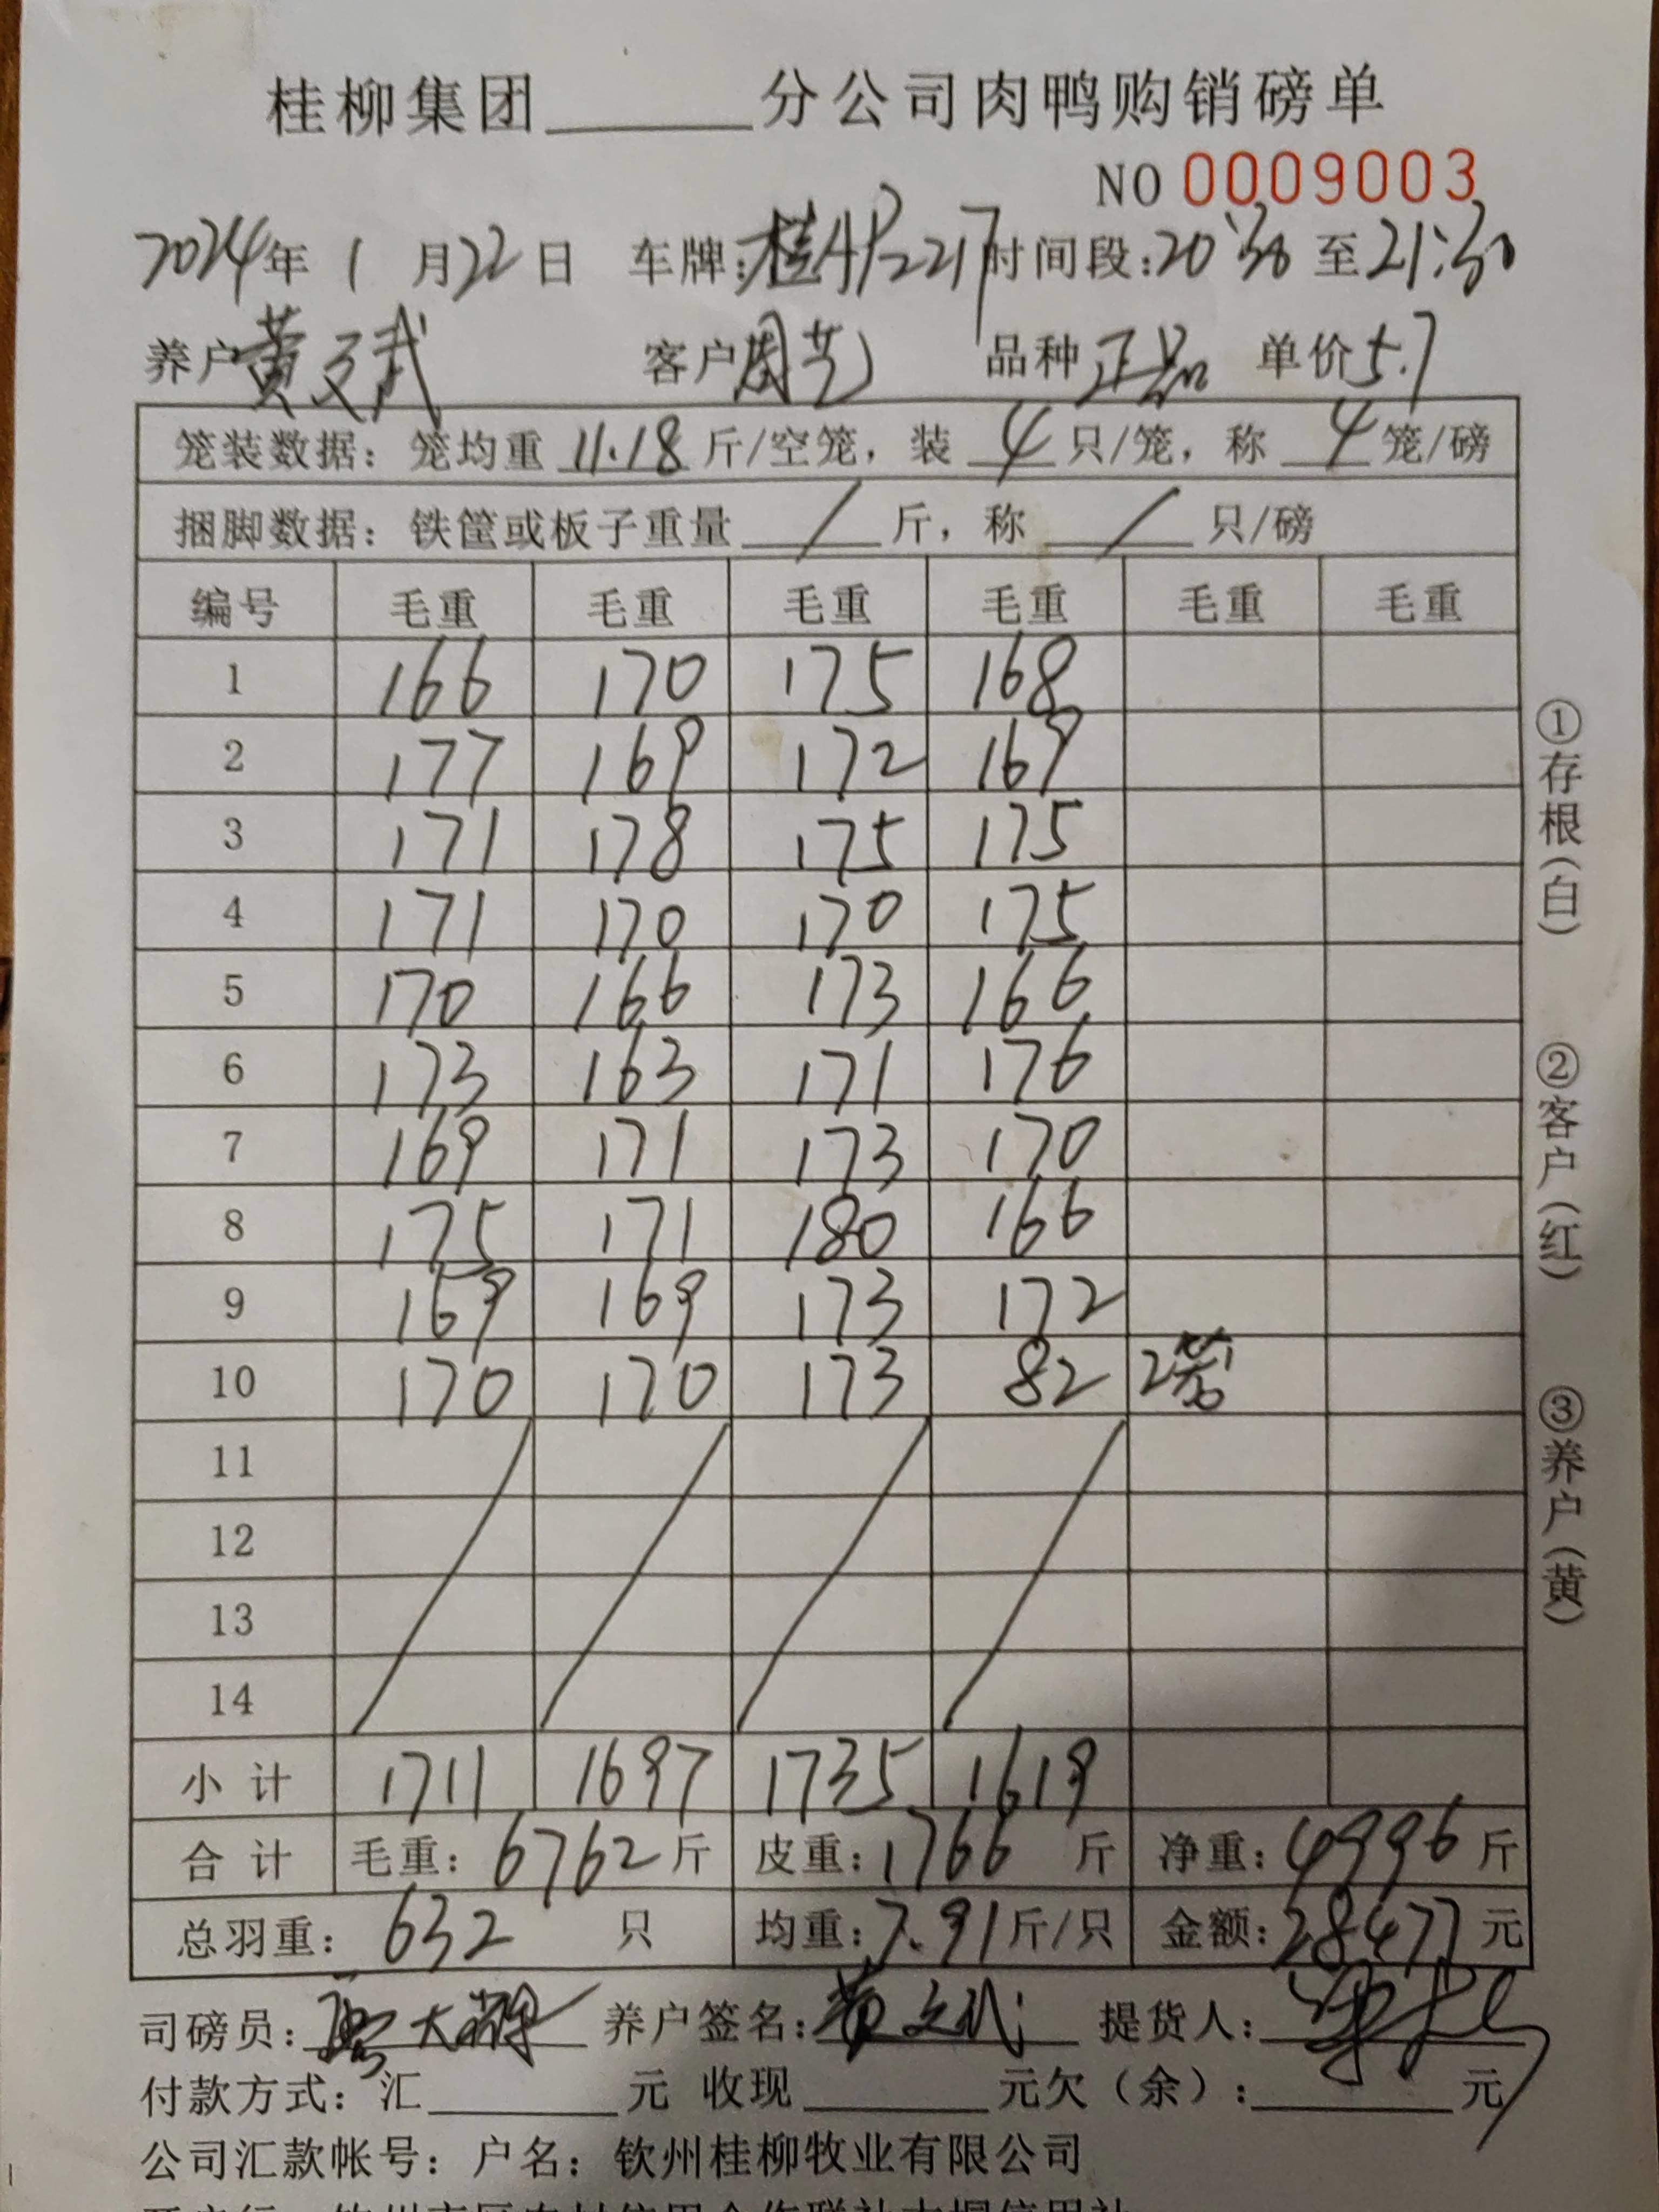 桂柳集团______分公司肉鸭购销磅单
NO 0009003
2024年 1 月22日 车牌:桂 P2217 时间段:20:30 至21:30
养户黄文武 客户周艺 品种正品 单价5.7
笼装数据: 笼均重 11.18 斤/空笼, 装 4 只/笼, 称 4 笼/磅
捆脚数据: 铁筐或板子重量 / 斤, 称 / 只/磅
编号 毛重 毛重 毛重 毛重 毛重 毛重
1 166 170 175 168
2 177 169 172 169
3 171 178 175 175
4 171 170 170 175
5 170 166 173 166
6 173 163 171 176
7 169 171 173 170
8 175 171 180 166
9 169 169 173 172
10 170 170 173 82 2笼
11
12
13
14
小 计 1711 1697 1735 1619
合 计 毛重: 6762 斤 皮重: 1766 斤 净重: 4996 斤
总羽重: 632 只 均重: 7.91 斤/只 金额: 28477 元
司磅员: 养户签名: 黄文武 提货人:
付款方式: 汇______元 收现______元欠(余):______元
公司汇款帐号: 户名: 钦州桂柳牧业有限公司
①存根(白) ②客户(红) ③养户(黄)